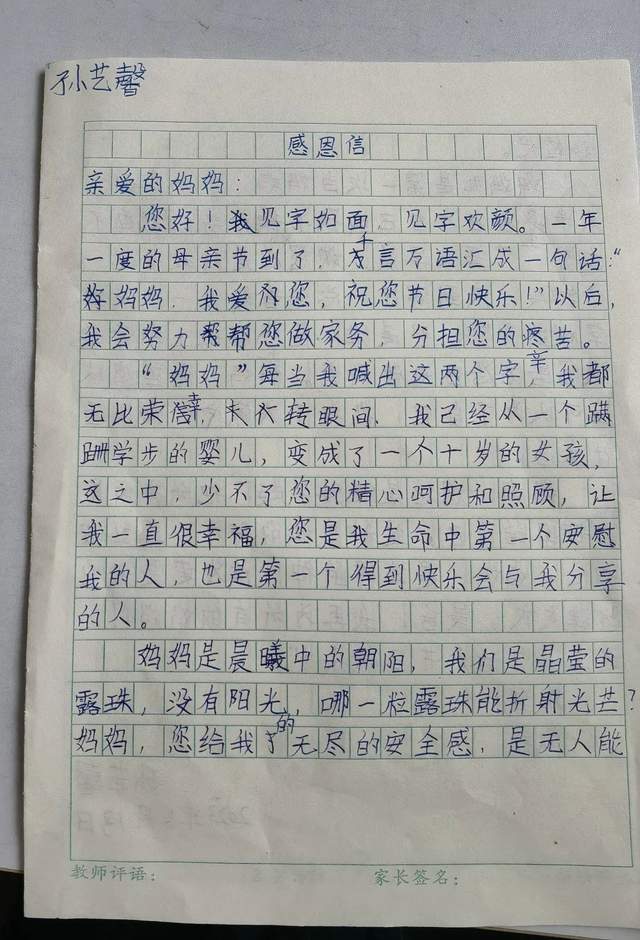 孙艺馨
感恩信
亲爱的妈妈：
您好！我见字如面，见字欢颜。一年
一度的母亲节到了，千言万语汇成一句话：“
好妈妈，我爱您，祝您节日快乐！”以后，
我会努力帮您做家务，分担您的疼苦。
“妈妈”每当我喊出这两个字，我都
无比荣幸，转眼间，我已经从一个蹒
跚学步的婴儿，变成了一个十岁的女孩，
这之中，少不了您的精心呵护和照顾，让
我一直很幸福，您是我生命中第一个安慰
我的人，也是第一个得到快乐会与我分享
的人。
妈妈是晨曦中的朝阳，我们是晶莹的
露珠，没有阳光，哪一粒露珠能折射光芒？
妈妈，您给我的无尽的安全感，是无人能
教师评语：
家长签名：